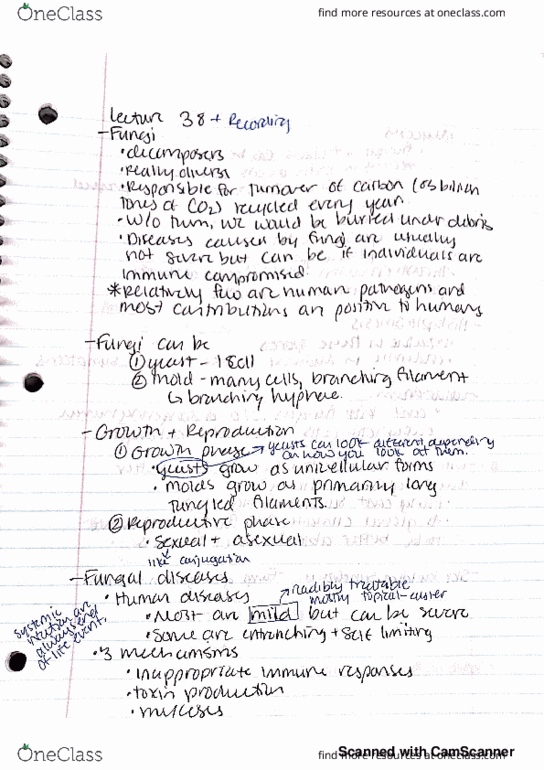 OneClass
find more resources at oneclass.com
Lecture 38 + Recording
- Fungi
• decomposers
• Really diverse
• Responsible for turnover of carbon (85 billion
tones of CO2) recycled every year
• W/o them, we would be burried under debris
• Diseases caused by fungi are usually
not severe but can be if individuals are
immune compromised.
* Relatively few are human pathogens and
most contributions are positive to humans
- Fungi can be
① yeast - 1 cell
② mold - many cells, branching filament
↳ branching hyphae.
- Growth + Reproduction
① Growth phase → yeasts can look different depending
on how you look at them.
• yeasts grow as unicellular forms
• molds grow as primarily long
tangled filaments.
② Reproductive phase
• Sexual + asexual
like conjugation
- Fungal diseases
• Human diseases
→ readibly treatable
mostly topical
• Most are mild but can be severe
• Some are + self limiting
systemic
are
always end
of life event.
• 3 mechanisms
• inappropriate immune responses
• toxin production
• mycoses
Scanned with CamScanner
OneClass
find more resources at oneclass.com